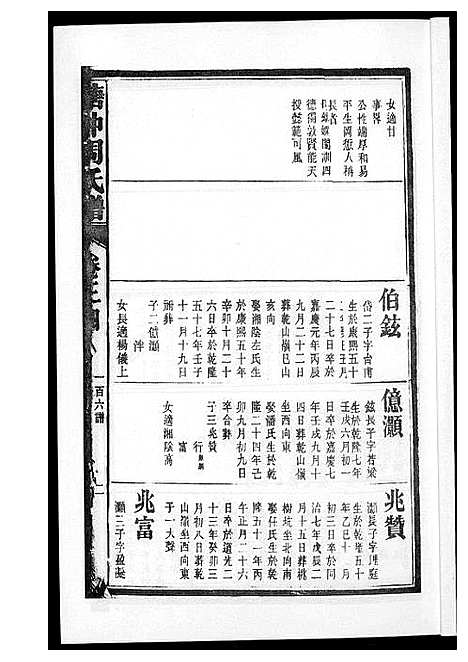 女適甘
事畧
公性端厚和易
平生罔愆人稱
長者
閫訓四
德備敦賢能天
授懿範可風
伯鉉
岱二子字台甫
生於康熙五十
二十七日卒於
嘉慶元年丙辰
九月二十二日
葬乾山嶺巳山
亥向
娶湘陰左氏生
於康熙五十年
辛卯十月二十
六日卒於乾隆
五十七年壬子
十一月十九日
祔葬
子二億灝
泮
女長適楊儀上
億灝
鉉長子字若梁
生於乾隆七年
壬戌六月初一
日卒於嘉慶七
年壬戌九月十
四日葬乾山嶺
坐西向東
娶潘氏生於乾
隆二十四年己
卯九月初九日
卒合葬
子三兆贊
行
女適湘陰高
兆贊
灝長子字
生於乾隆五十
年乙巳十一月
初三日卒於同
治七年戊辰二
月十五日葬桃
樹坑坐北向南
娶任氏生於乾
隆五十一年丙
午正月二十六
日卒於道光二
十三年癸卯三
月初八日葬乾
山嶺坐西向東
子一大聲
兆富
灝二子字盈
周氏譜